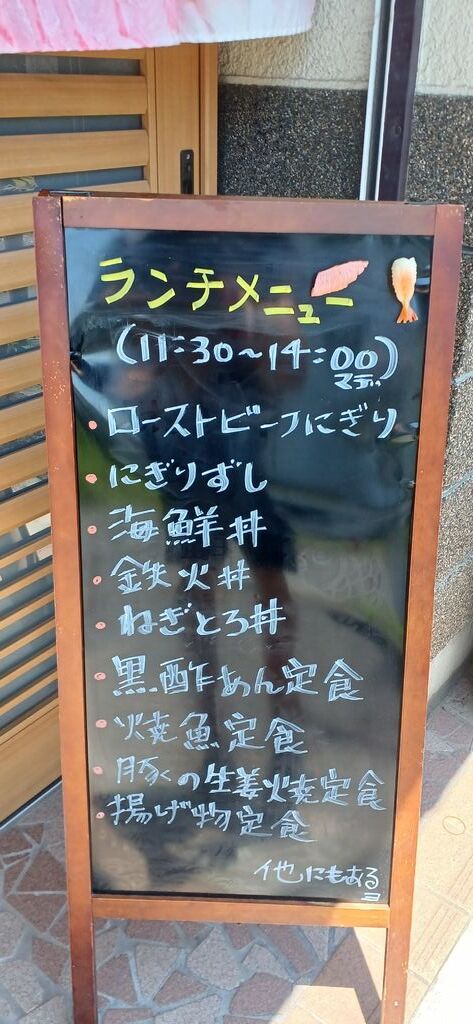 ランチメニュー
(11:30~14:00)
マデ
ローストビーフにぎり
にぎりずし
海鮮丼
鉄火丼
ねぎとろ丼
黒酢あん定食
焼魚定食
豚の生姜焼定食
揚げ物定食
他にもある
ヨ